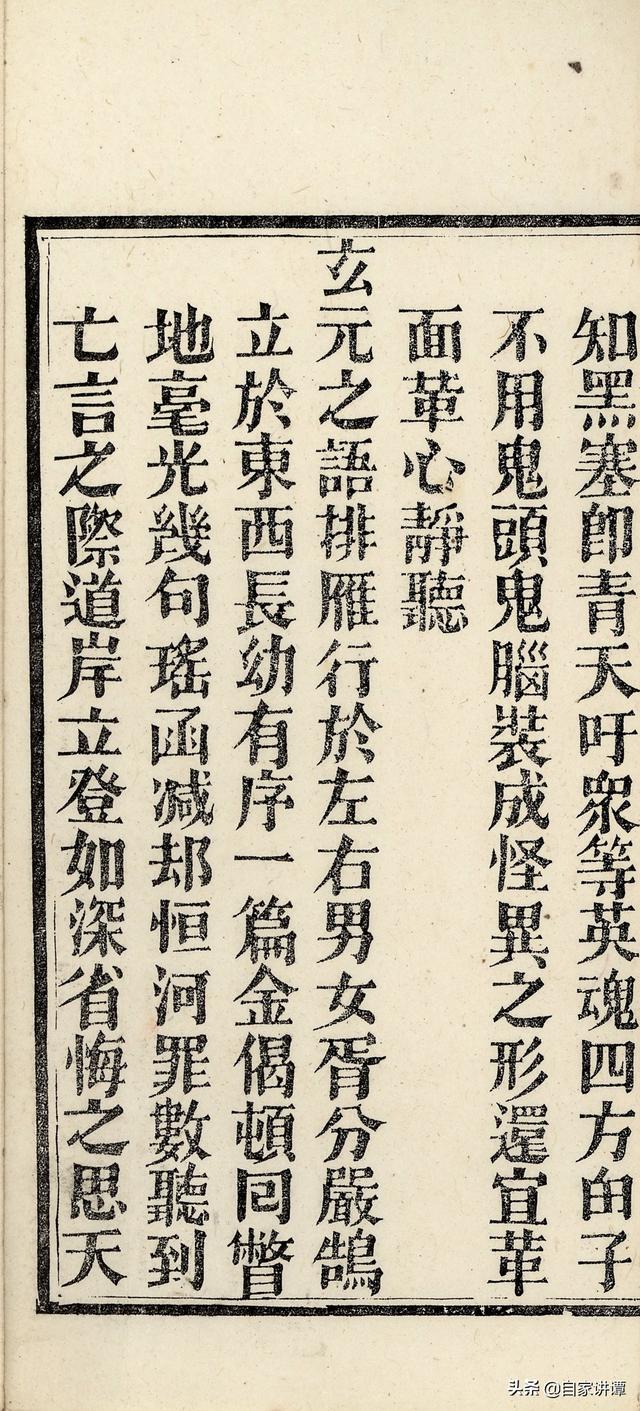 知黑塞卽青天吁衆等英魂四方由子
不用鬼頭鬼腦裝成怪異之形還宜革
面革心靜聽
玄元之語排雁行於左右男女胥分嚴鵠
立於東西長幼有序一篇金偈頓回瞥
地毫光幾句瑤函减却恒河罪數聽到
亡言之際道岸立登如深省悔之思天
头条 @自家讲谭